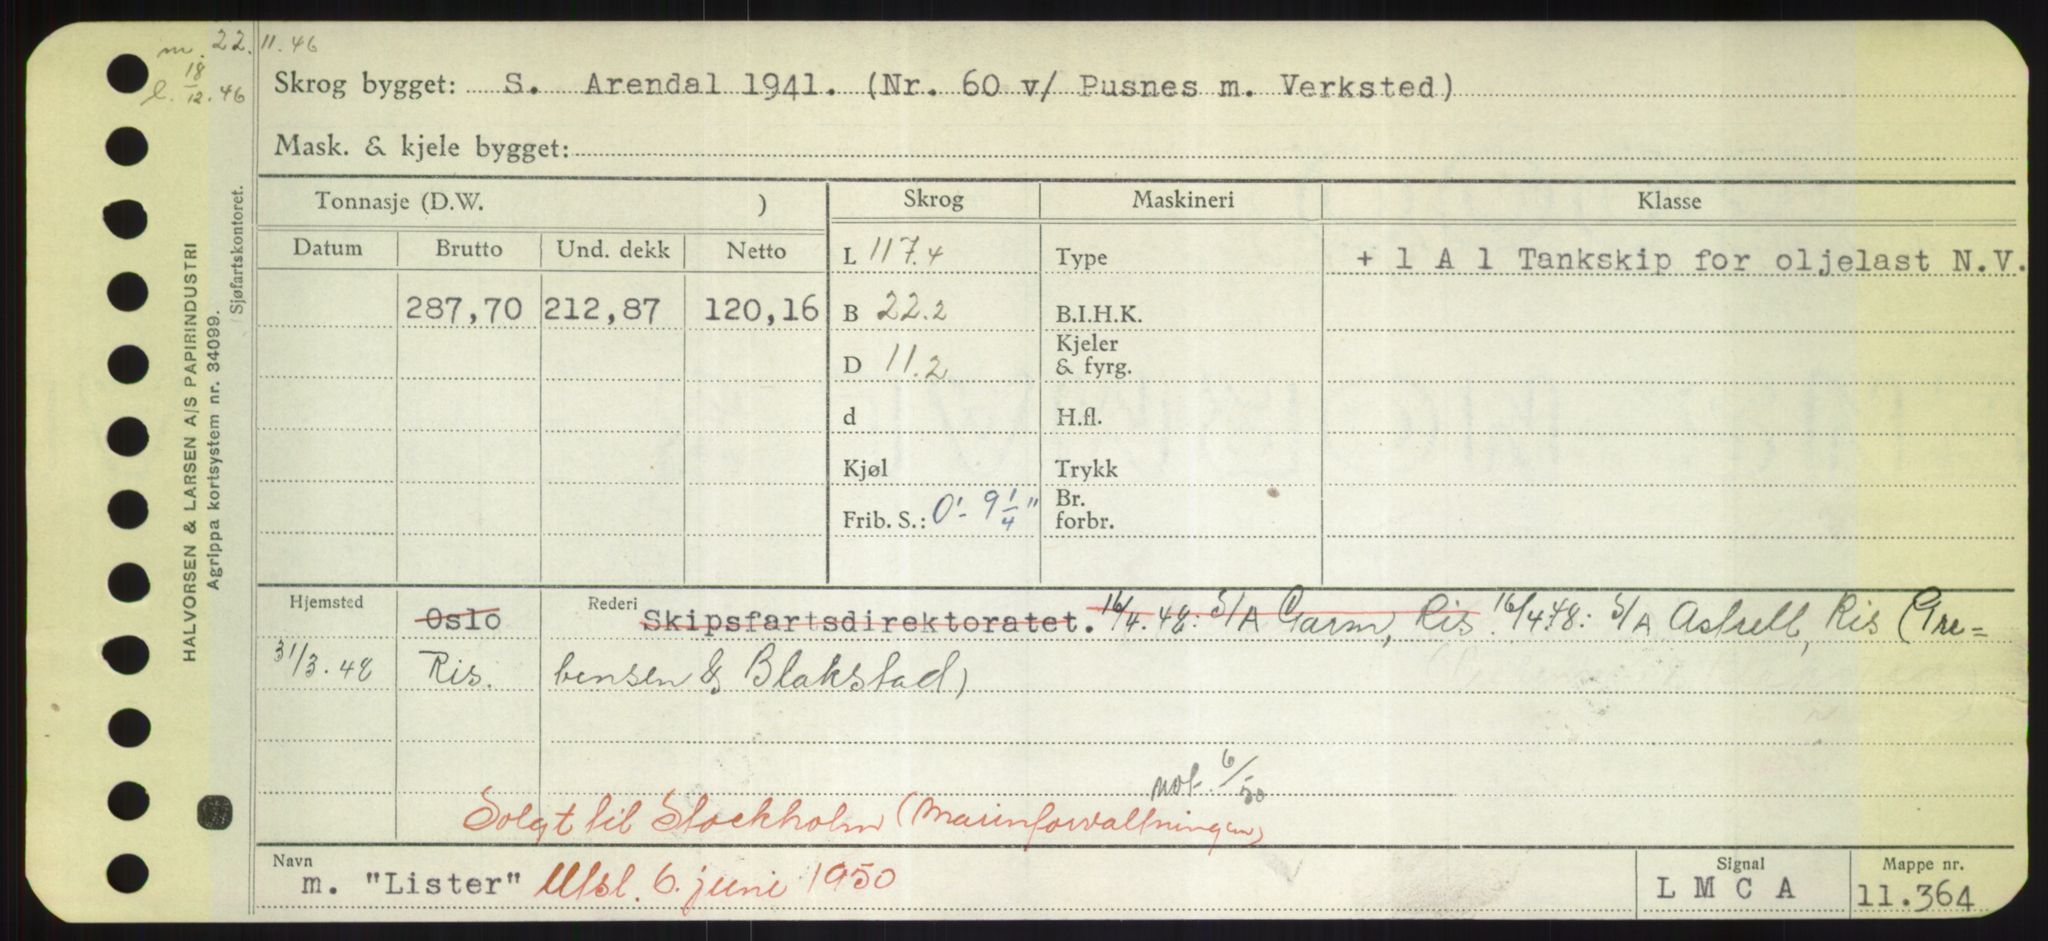 m. 22.11.46
l. 18/12.46
Skrog bygget: S. Arendal 1941. (Nr. 60 v/ Pusnes m. Verksted)
Mask. & kjele bygget:
HALVORSEN & LARSEN A/S PAPIRINDUSTRI
Agrippa kortsystem nr. 34099.
Sjøfartskontoret.
Tonnasje (D.W. ) Skrog Maskineri Klasse
Datum Brutto Und. dekk Netto L 117.4 Type + 1 A 1 Tankskip for oljelast N.V.
287,70 212,87 120,16 B 22.2 B.I.H.K.
D 11.2 Kjeler & fyrg.
d H.fl.
Kjøl Trykk
Frib. S.: 0'- 9 1/4" Br. forbr.
Hjemsted Oslo Rederi Skipsfartsdirektoratet. 16/4.48: S/A Garm, Ris. 16/4.48: S/A Astrell, Ris (Gre=
31/3.48 Ris. bensen & Blakstad)
not. 6/50
Solgt til Stockholm (Marinforvaltningen)
Navn m. "Lister" Utsl. 6. juni 1950 Signal L M C A Mappe nr. 11.364